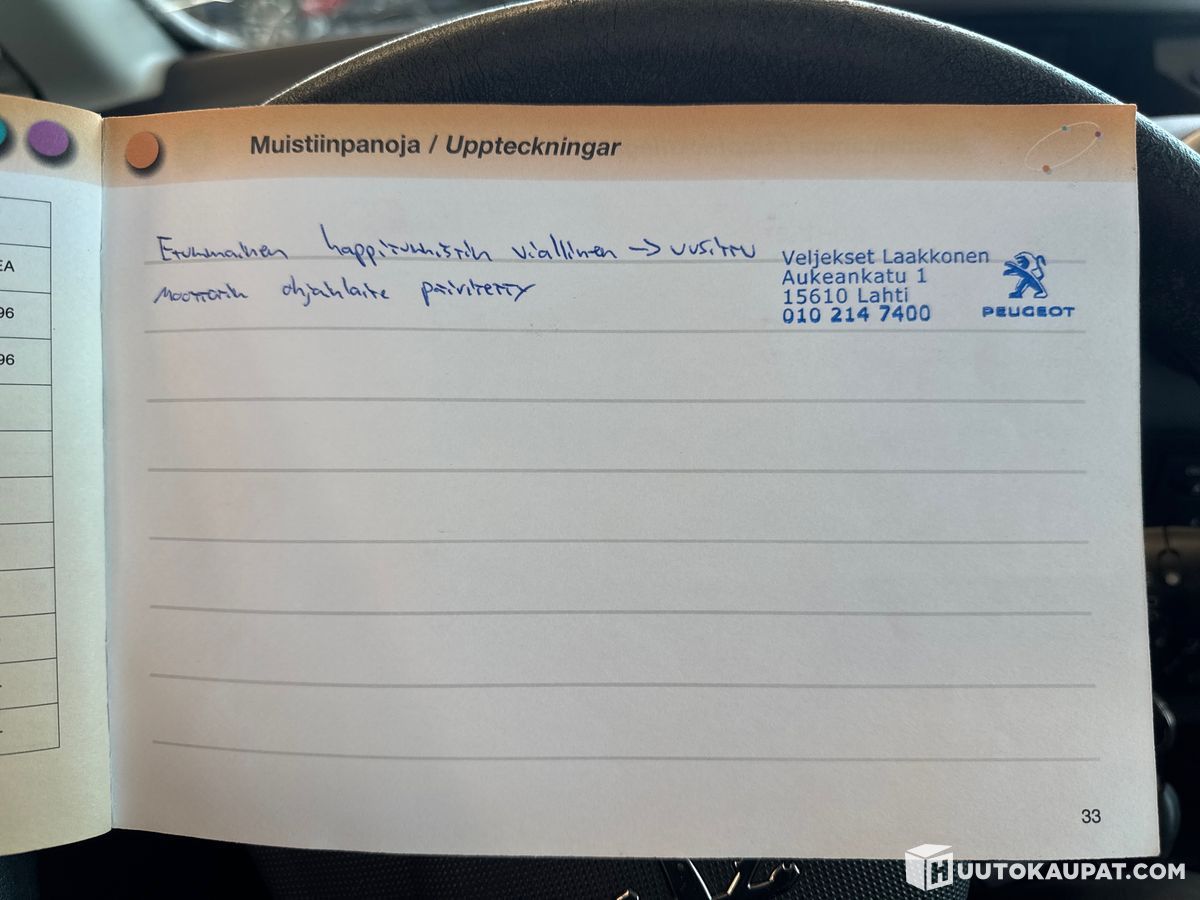 Muistiinpanoja / Uppteckningar
Etummainen happitunnistin viallinen -> uusittu
Moottorin ohjainlaite päivitetty
Veljekset Laakkonen
Aukeankatu 1
15610 Lahti
010 214 7400
PEUGEOT
EA
96
96
33
HUUTOKAUPAT.COM